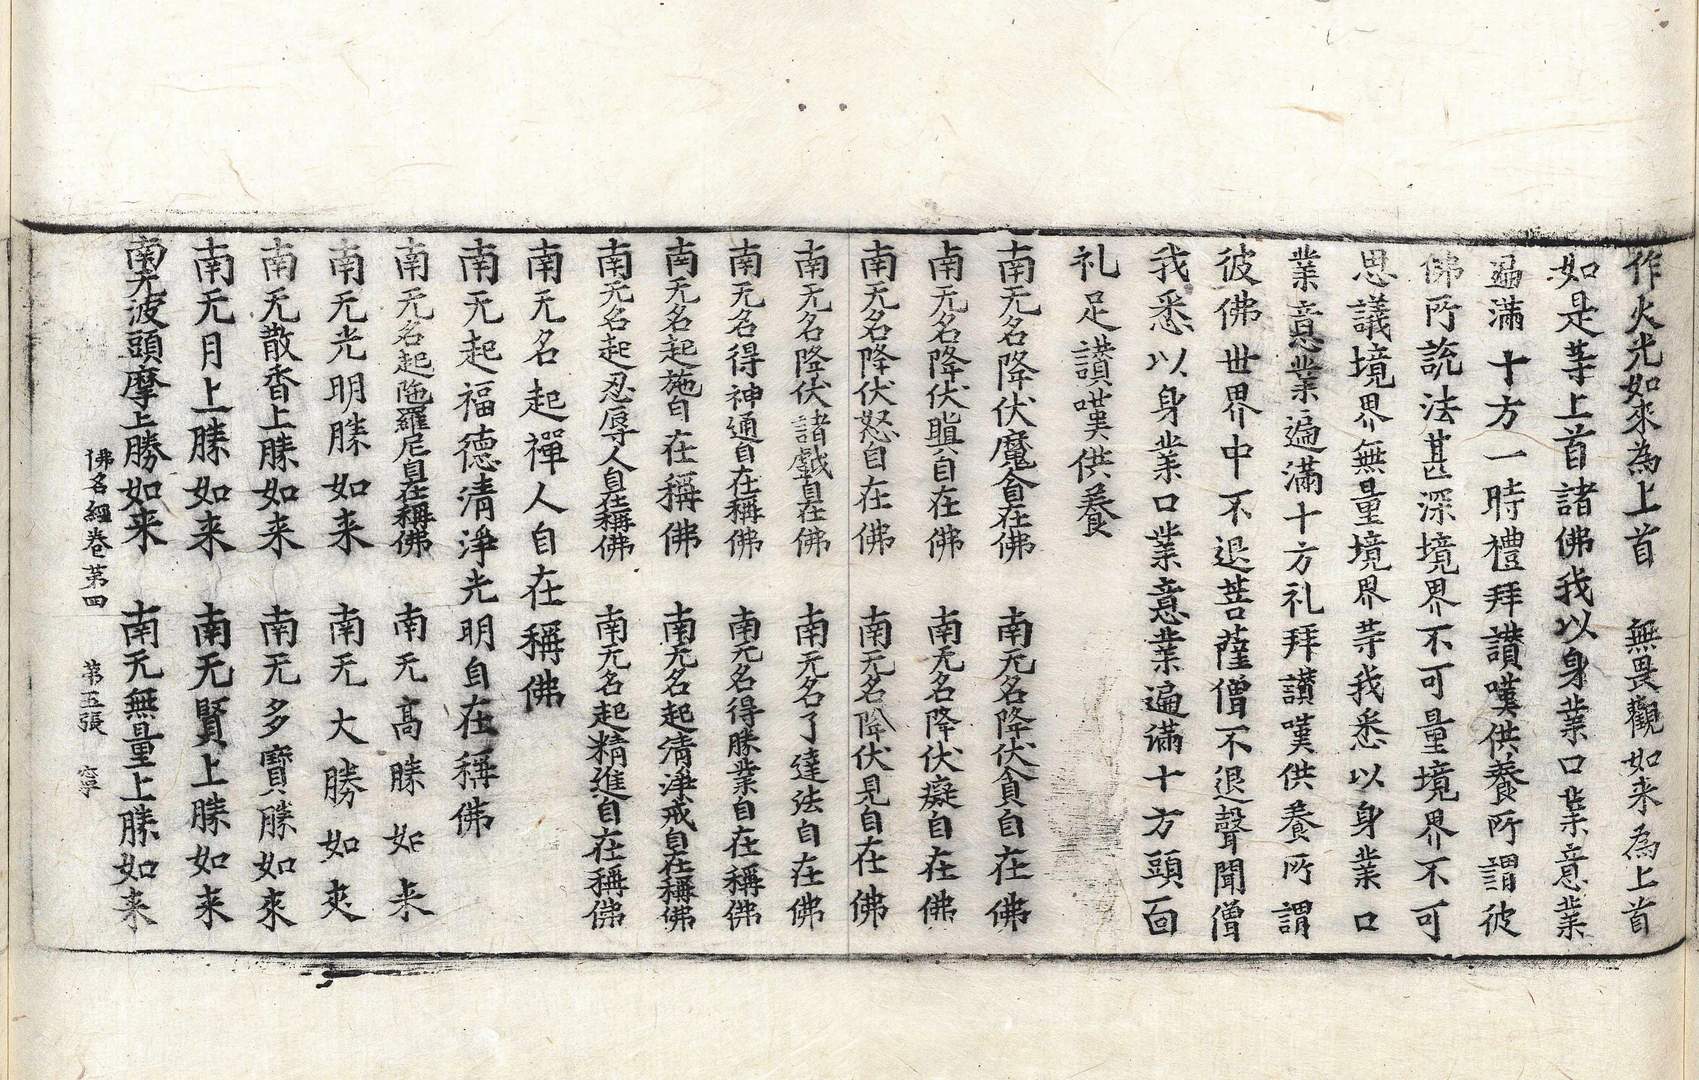 作火光如來為上首　無畏觀如来為上首
如是䓁上首諸佛我以身業口業意業
遍滿十方一時禮拜讃嘆供養所謂彼
佛所說法甚深境界不可量境界不可
思議境界無量境界䓁我悉以身業口
業意業遍滿十方礼拜讃嘆供養所謂
彼佛世界中不退菩薩僧不退聲聞僧
我悉以身業口業意業遍滿十方頭面
礼足讃嘆供養
南无名降伏魔貪自在佛　南无名降伏貪自在佛
南无名降伏瞋自在佛　南无名降伏癡自在佛
南无名降伏怒自在佛　南无名降伏見自在佛
南无名降伏諸戲自在佛　南无名了達法自在佛
南无名得神通自在稱佛　南无名得勝業自在稱佛
南无名起施自在稱佛　南无名起清淨戒自在稱佛
南无名起忍辱人自在稱佛　南无名起精進自在稱佛
南无名起禪人自在稱佛
南无起福德清淨光明自在稱佛
南无名起陁羅尼自在稱佛　南无高勝如来
南无光明勝如来　南无大勝如来
南无散香上勝如来　南无多寶勝如來
南无月上勝如来　南无賢上勝如来
南无波頭摩上勝如来　南无無量上勝如来
佛名經卷第四　第五張　寧